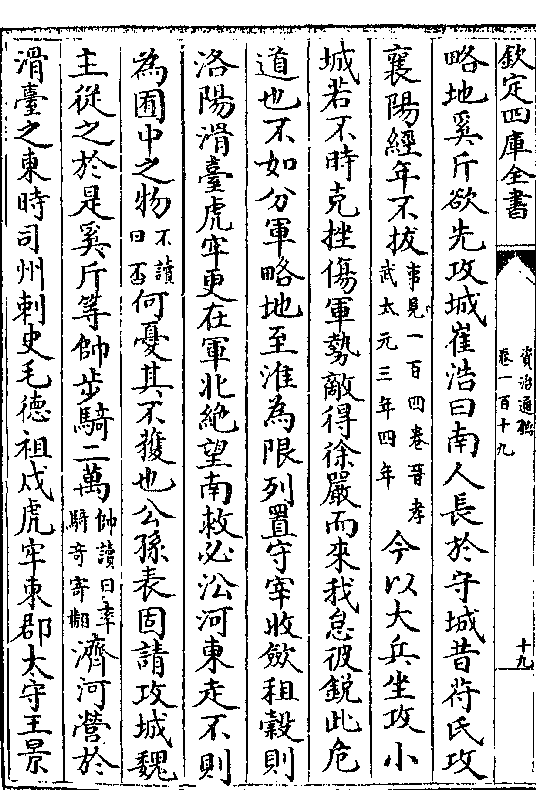 欽定四庫全書
資治通鑑
卷一百十九
十九
略地奚斤欲先攻城崔浩曰南人長於守城昔苻氏攻
襄陽經年不拔事見一百四卷晉孝武太元三年四年今以大兵坐攻小
城若不時克挫傷軍勢敵得徐嚴而來我怠彼銳此危
道也不如分軍略地至淮為限列置守宰收斂租穀則
洛陽滑臺虎牢更在軍北絶望南救必㳂河東走不則
為囿中之物不讀曰否何憂其不獲也公孫表固請攻城魏
主從之於是奚斤等帥步騎二萬帥讀曰率騎奇寄翻濟河營於
滑臺之東時司州刺史毛德祖戍虎牢東郡太守王景